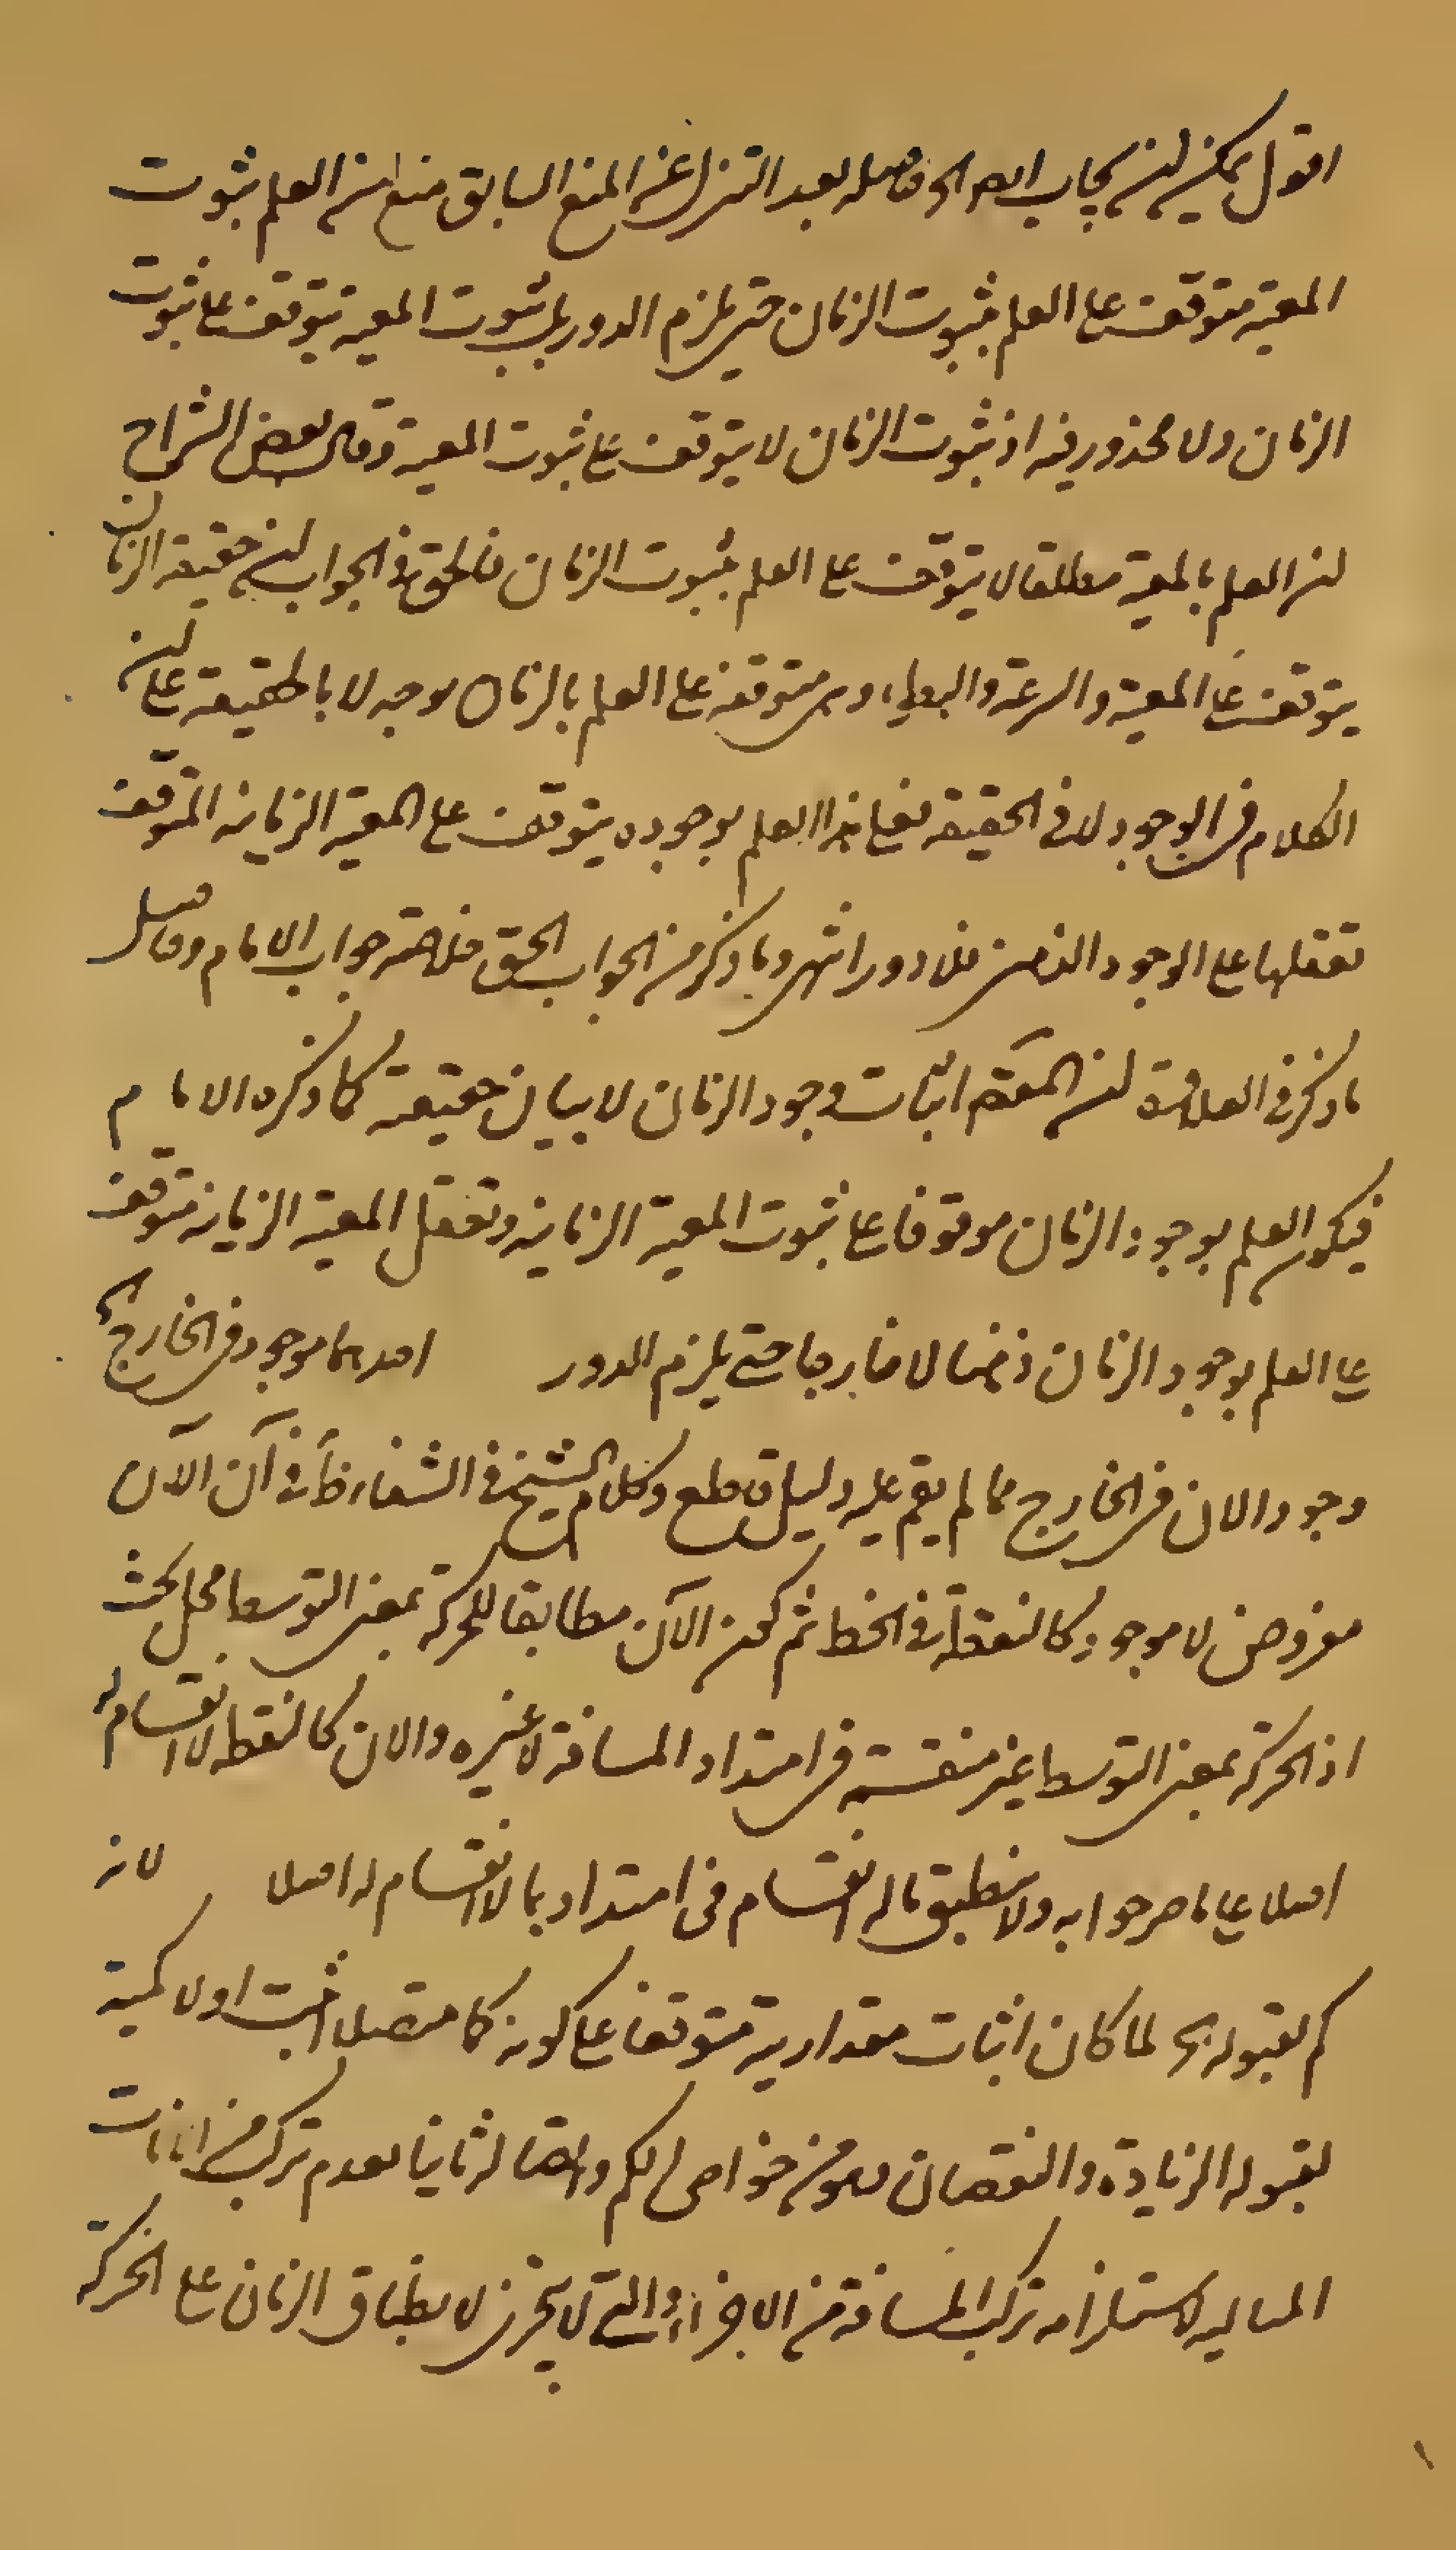 اقول يمكن ان يجاب ايضا حاصله بعد التنزل عن المنع السابق منع ان العلم بثبوت
المعية متوقف على العلم بثبوت الزمان حتى يلزم الدور بل ثبوت المعية يتوقف على ثبوت
الزمان ولا محذور فيه اذ ثبوت الزمان لا يتوقف على ثبوت المعية وقال بعض الشراح
ان العلم بالمعية مطلقا لا يتوقف على العلم بثبوت الزمان فالحق في الجواب ان حقيقة الزمان
يتوقف على المعية والسرعة والبطاء وهي متوقفة على العلم بالزمان بوجه لا بالحقيقة على ان
الكلام في الوجود لا في الحقيقة فعلى هذا العلم بوجوده يتوقف على المعية الزمانية المتوقف
تعقلها على الوجود الذهني فلا دور انتهى وما ذكر من الجواب الحق خلاصة جواب الامام وحاصل
ما ذكر في العلاوة ان المقصم اثبات وجود الزمان لا بيان حقيقته كما ذكره الامام
فيكون العلم بوجود الزمان موقوفا على ثبوت المعية الزمانية وتعقل المعية الزمانية متوقف
على العلم بوجود الزمان ذهنا لا خارجا حتى يلزم الدور احدهما موجود في الخارج الخ
وجود الان في الخارج مما لم يقم عليه دليل قاطع وكلام الشيخ في الشفاء ان الآن
مفروض لا موجود كالنقطة في الخط ثم كون الآن مطابقا للحركة بمعنى التوسط محل بحث
اذ الحركة بمعنى التوسط غير منقسمة في امتداد المسافة لا غيره والان كالنقطة لا انقسام له
اصلا على ما صرحوا به ولا ينطبق ماله انقسام في امتداد بما لا انقسام له اصلا لانه
كم لقبوله الخ لما كان اثبات مقداريته متوقفا على كونه كما متصلا اثبت اولا كميته
بقبوله الزيادة والنقصان وهو من خواص الكم واتصاله ثانيا بعدم تركبه من انات
المتتالية لاستلزامه تركب المسافة من الاجزاء التي لا يتجزى لانطباق الزمان على الحركة